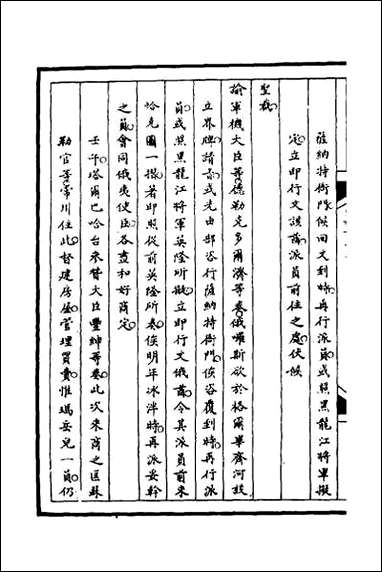 薩納特衙門候回文到時再行派員或照黑龍江將軍擬
定立即行文該酋派員前往之處伏候
聖裁
諭軍機大臣等德勒克多爾濟等奏俄囉斯欲於格爾畢齊河設
立界牌請旨或先由部咨行薩納特衙門俟咨覆到時再行派
員或照黑龍江將軍英隆所擬立即行文俄酋令其派員前來
恰克圖一摺著即照從前英隆所奏俟明年冰泮時再派妥幹
之員會同俄夷使臣各查和好商定
壬午塔爾巴哈台參贊大臣豐紳等奏此次來商之匡蘇
勒官等常川住此督建房屋管理買賣惟瑪妥兒一員仍